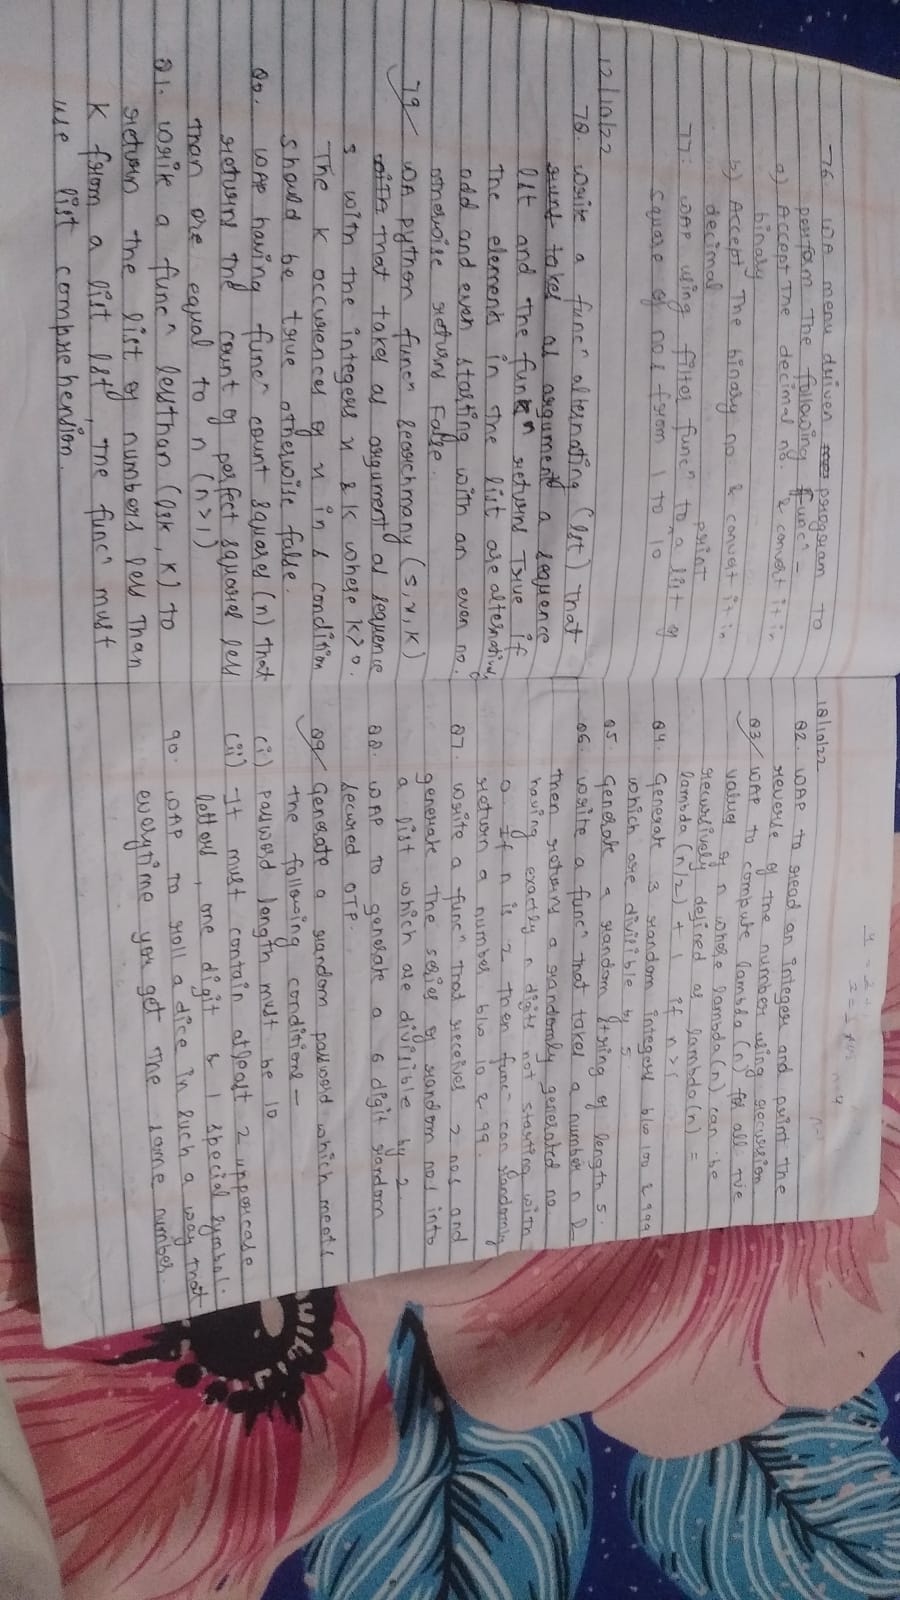 76. WA menu driven program to
perform the following func^n –
a) Accept the decimal no. & convert it in
binary
b) Accept the binary no. & convert it in
decimal
77. WAP using filter func^n to print a list of
square of nos from 1 to 10
12/10/22
78. write a func^n alternating (lst) that
takes as argument a sequence
lst and the func^n returns True if
the elements in the list are alternatively
odd and even starting with an even no.
otherwise returns False.
79 WA python func^n searchmany (s, x, k)
that takes as argument a sequence
s with the integers x & k where k>0.
The k occurences of x in s condition
should be true otherwise false.
80. WAP having func^n count squares (n) that
returns the count of perfect squares less
than are equal to n (n>1)
81. write a func^n lessthan (lsk, k) to
return the list of numbers less than
k from a list lst, the func^n must
use list comprehension.
18/10/22
82. WAP to read an integer and print the
reverse of the number using recursion
83 WAP to compute lambda (n) for all +ve
values of n where lambda (n) can be
recursively defined as lambda (n) =
lambda (n/2) + 1 if n>1
84. Generate 3 random integers b/w 100 & 999
which are divisible by 5.
85. Generate a random string of length 5.
86. write a func^n that takes a number n &
then returns a randomly generated no.
having exactly n digits not starting with
0 if n is 2 then func^n can randomly
return a number b/w 10 & 99.
87. write a func^n that receives 2 nos and
generate the series of random nos into
a list which are divisible by 2.
88. WAP to generate a 6 digit random
secured OTP.
89 Generate a random password which meets
the following conditions –
(i) password length must be 10
(ii) It must contain atleast 2 uppercase
letters, one digit & 1 special symbol.
90. WAP to roll a dice in such a way that
everytime you get the same number.